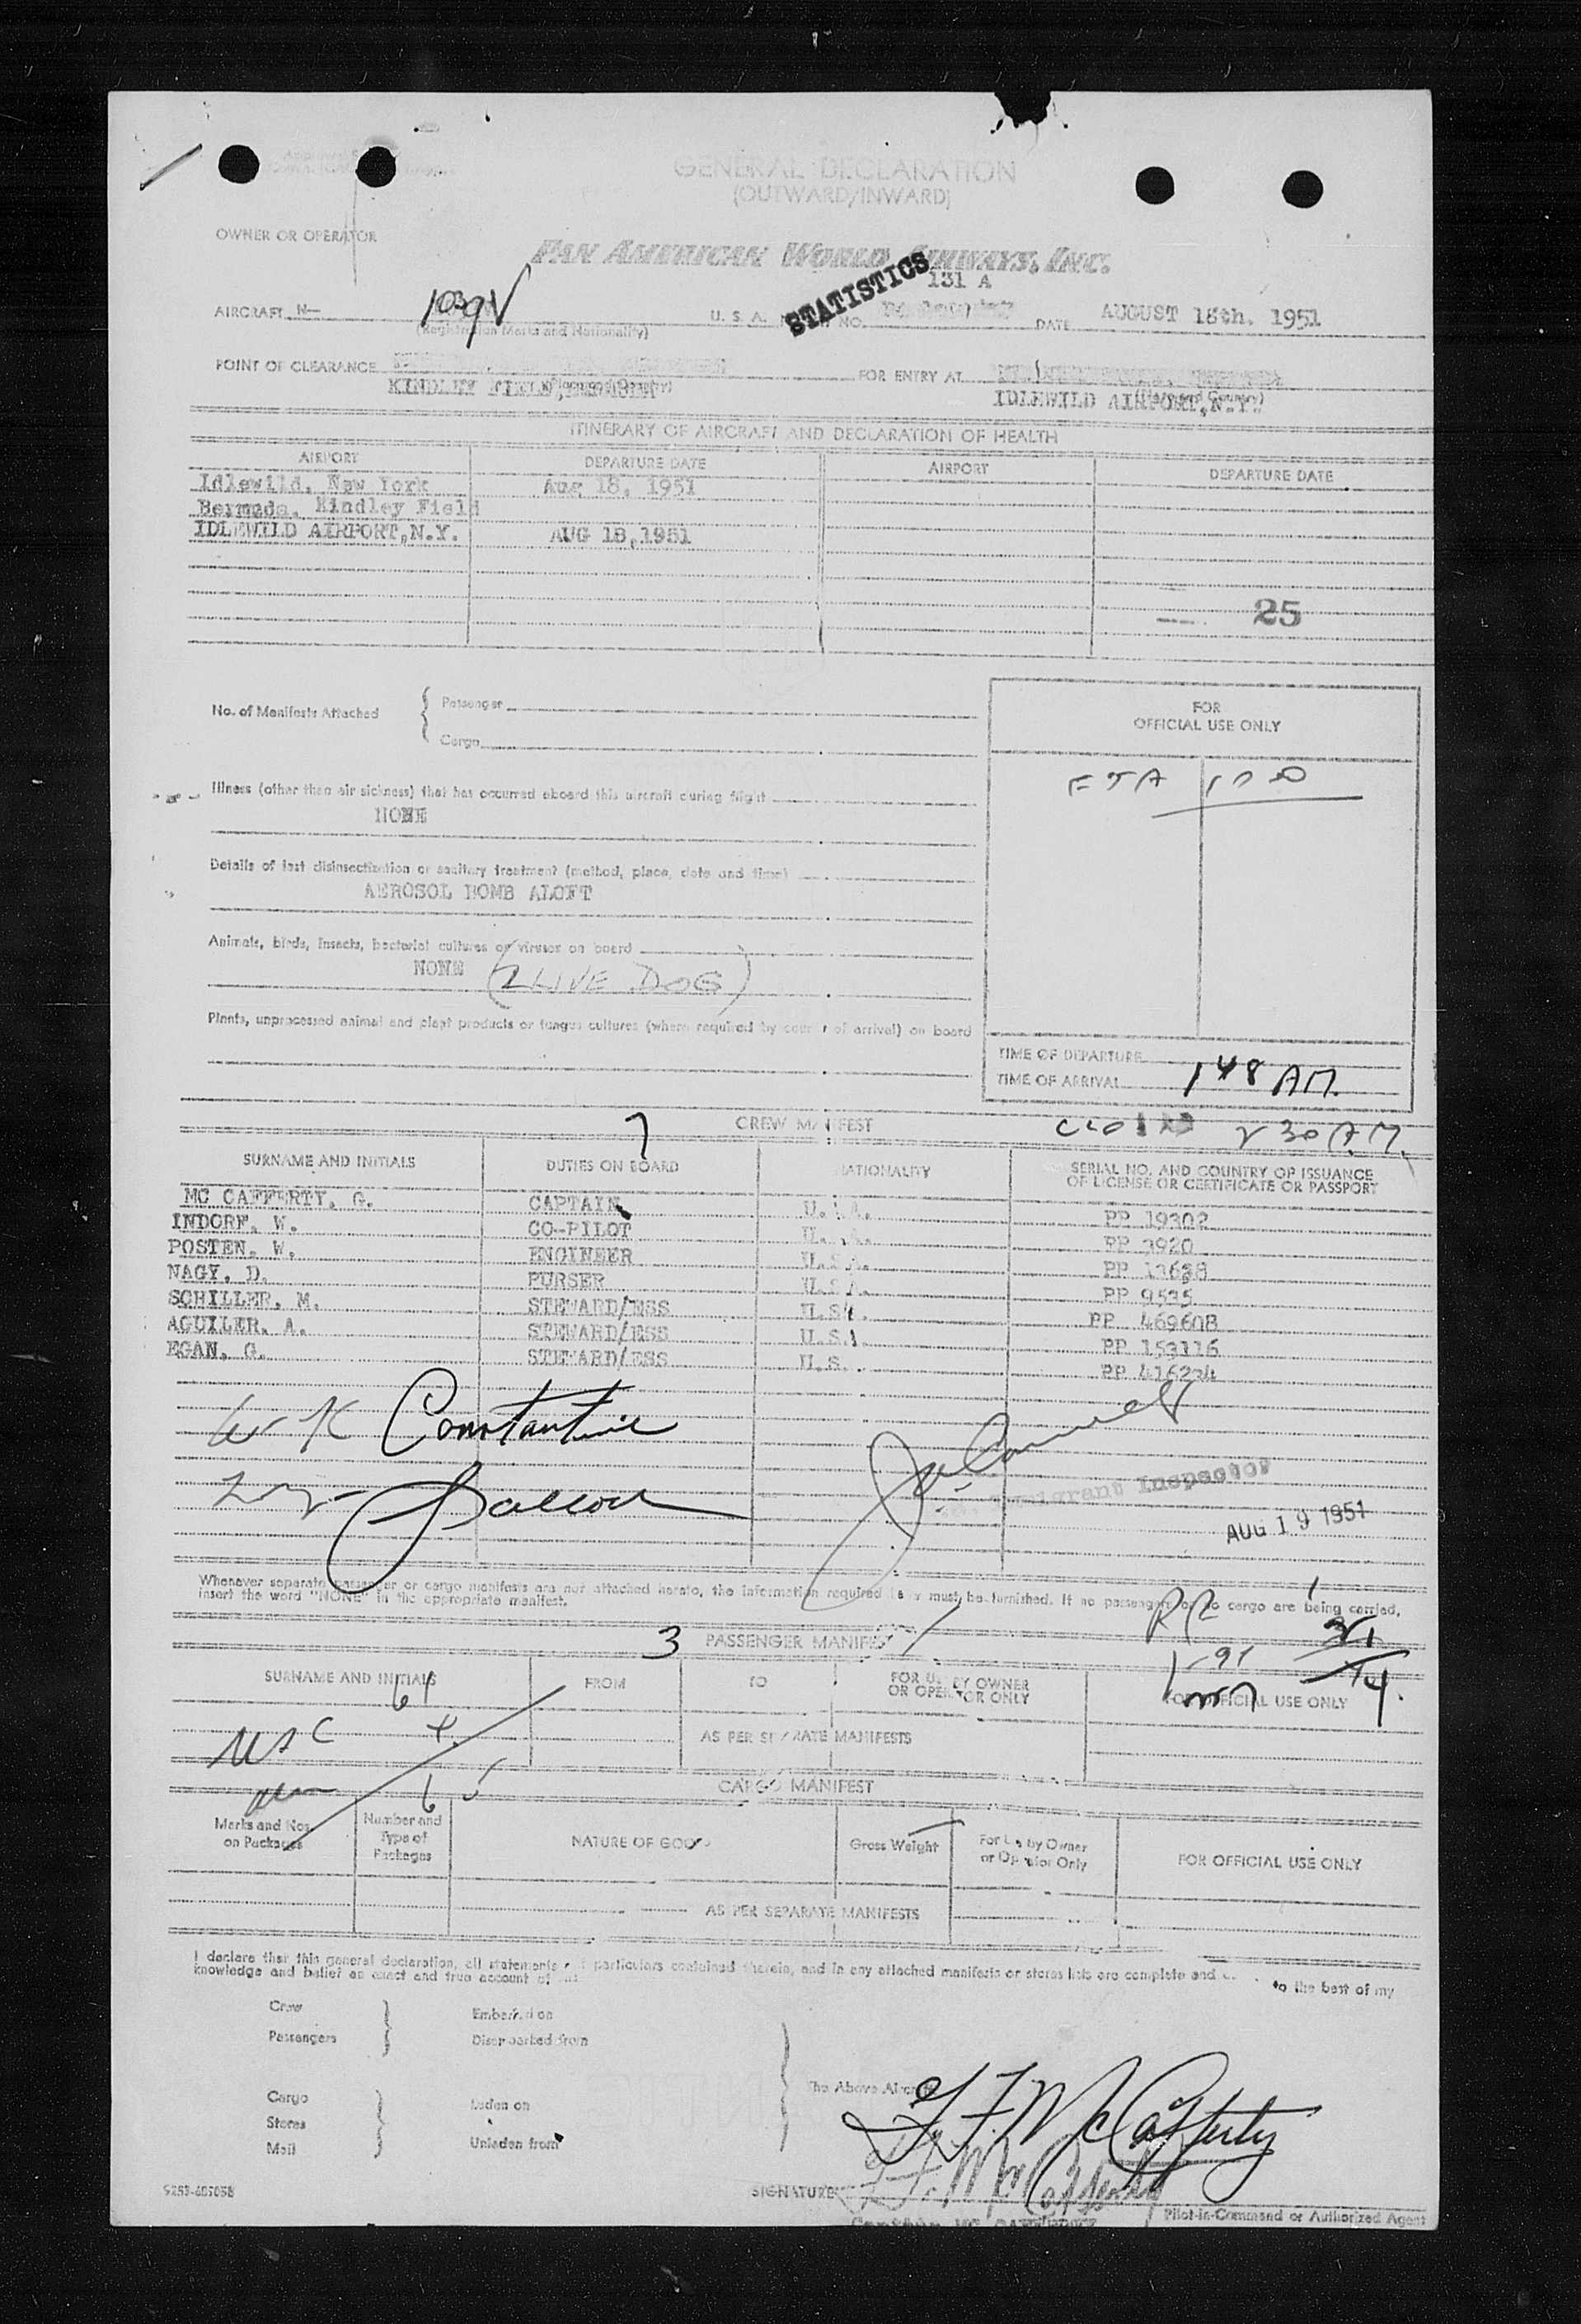 GENERAL DECLARATION
(OUTWARD/INWARD)
OWNER OR OPERATOR
PAN AMERICAN WORLD AIRWAYS, INC.
STATISTICS
131 A
AIRCRAFT N— 1039V U. S. A. NO. DATE AUGUST 18th. 1951
(Registration Marks and Nationality)
POINT OF CLEARANCE FOR ENTRY AT
KINDLEY FIELD, IDLEWILD AIRPORT, N.Y.
ITINERARY OF AIRCRAFT AND DECLARATION OF HEALTH
AIRPORT DEPARTURE DATE AIRPORT DEPARTURE DATE
Idlewild, New York Aug 18, 1951
Bermuda, Kindley Field
IDLEWILD AIRPORT,N.Y. AUG 18,1951
25
No. of Manifests Attached { Passenger
Cargo
FOR
OFFICIAL USE ONLY
ETA
Illness (other than air sickness) that has occurred aboard this aircraft during flight
NONE
Details of last disinsectization or sanitary treatment (method, place, date and time)
AEROSOL BOMB ALOFT
Animals, birds, insects, bacterial cultures or viruses on board
NONE LIVE DOG)
Plants, unprocessed animal and plant products or fungus cultures (where required by of arrival) on board
TIME OF DEPARTURE
TIME OF ARRIVAL 148 AM.
7 CREW MANIFEST 230 A.M.
SURNAME AND INITIALS DUTIES ON BOARD NATIONALITY SERIAL NO. AND COUNTRY OF ISSUANCE
OF LICENSE OR CERTIFICATE OR PASSPORT
MC CAFFERTY, G. CAPTAIN U.S.A. PP 19302
INDORF, W. CO-PILOT U.S.A. PP 3920
POSTEN, W. ENGINEER U.S.A. PP 13638
NAGY, D. PURSER U.S.A. PP 9535
SCHILLER, M. STEWARD/ESS U.S. PP 469608
AGUILER, A. STEWARD/ESS U.S. PP 153116
EGAN, G. STEWARD/ESS U.S. PP 416234
W K Constantine
Immigrant Inspector
AUG 19 1951
Whenever separate passenger or cargo manifests are not attached hereto, the information required must be furnished. If no passengers or no cargo are being carried,
insert the word "NONE" in the appropriate manifest.
3 PASSENGER MANIFEST
SURNAME AND INITIALS FROM TO FOR USE BY OWNER
OR OPERATOR ONLY FOR OFFICIAL USE ONLY
61
USC
AS PER SEPARATE MANIFESTS
CARGO MANIFEST
Marks and Nos.
on Packages Number and
Type of
Packages NATURE OF GOODS Gross Weight For Use by Owner
or Operator Only FOR OFFICIAL USE ONLY
AS PER SEPARATE MANIFESTS
I declare that this general declaration, all statements particulars contained therein, and in any attached manifests or stores lists are complete and to the best of my
knowledge and belief an exact and true account of
Crew Embarked on
Passengers Disembarked from
The Above Aircraft
Cargo Laden on
Stores
Mail Unladen from
G. F. McCafferty
SIGNATURE
Pilot-in-Command or Authorized Agent